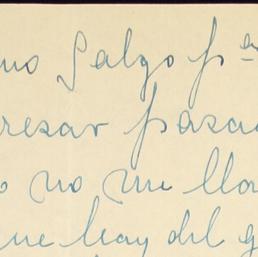 no Galgo pa
resar pasa
no me lla
ne hay del g